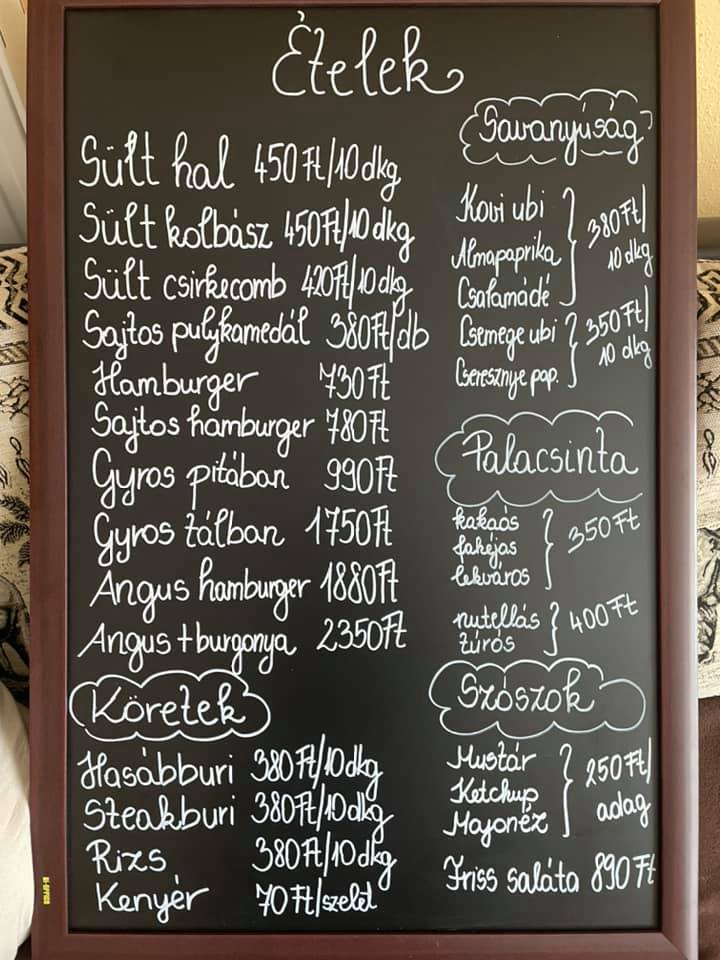 Ételek
Sült hal 450 Ft/10 dkg
Sült kolbász 450Ft/10 dkg
Sült csirkecomb 420Ft/10 dkg
Sajtos pulykamedál 380Ft/db
Hamburger 730 Ft
Sajtos hamburger 780Ft
Gyros pitában 990Ft
Gyros tálban 1750Ft
Angus hamburger 1880Ft
Angus + burgonya 2350Ft
Köretek
Hasábburi 380Ft/10dkg
Steakburi 380Ft/10dkg
Rizs 380Ft/10dkg
Kenyér 70Ft/szelet
Savanyúság
Kovi ubi
Almapaprika
Csalamádé
380Ft/
10 dkg
Csemege ubi
Cseresznye pap.
350Ft/
10 dkg
Palacsinta
kakaós
fahéjas
lekváros
350Ft
nutellás
túrós
400Ft
Szószok
Mustár
Ketchup
Majonéz
250Ft/
adag
Friss saláta 890Ft